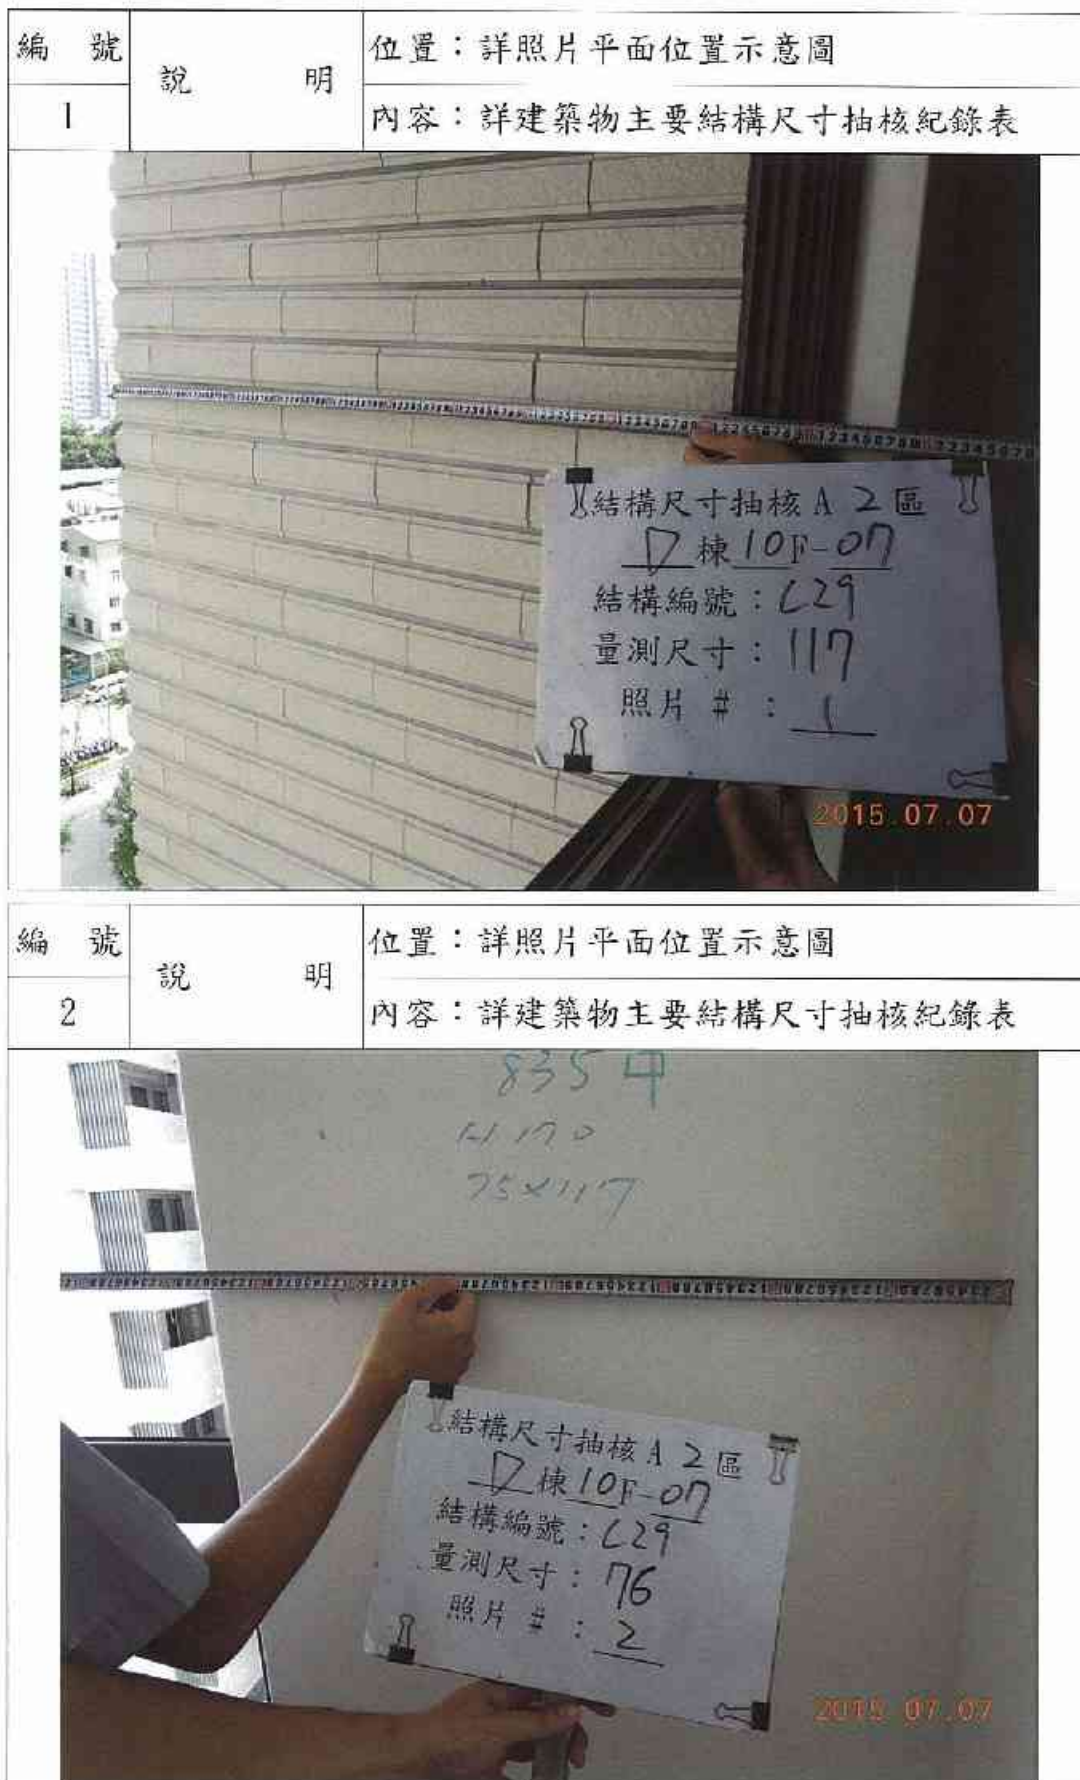 編 號
說 明
位置：詳照片平面位置示意圖
1
內容：詳建築物主要結構尺寸抽核紀錄表
結構尺寸抽核A 2區
D棟10F-07
結構編號：C29
量測尺寸：117
照片 #：1
2015.07.07
編 號
說 明
位置：詳照片平面位置示意圖
2
內容：詳建築物主要結構尺寸抽核紀錄表
835
H170
75×117
結構尺寸抽核A 2區
D棟10F-07
結構編號：C29
量測尺寸：76
照片 #：2
2015.07.07